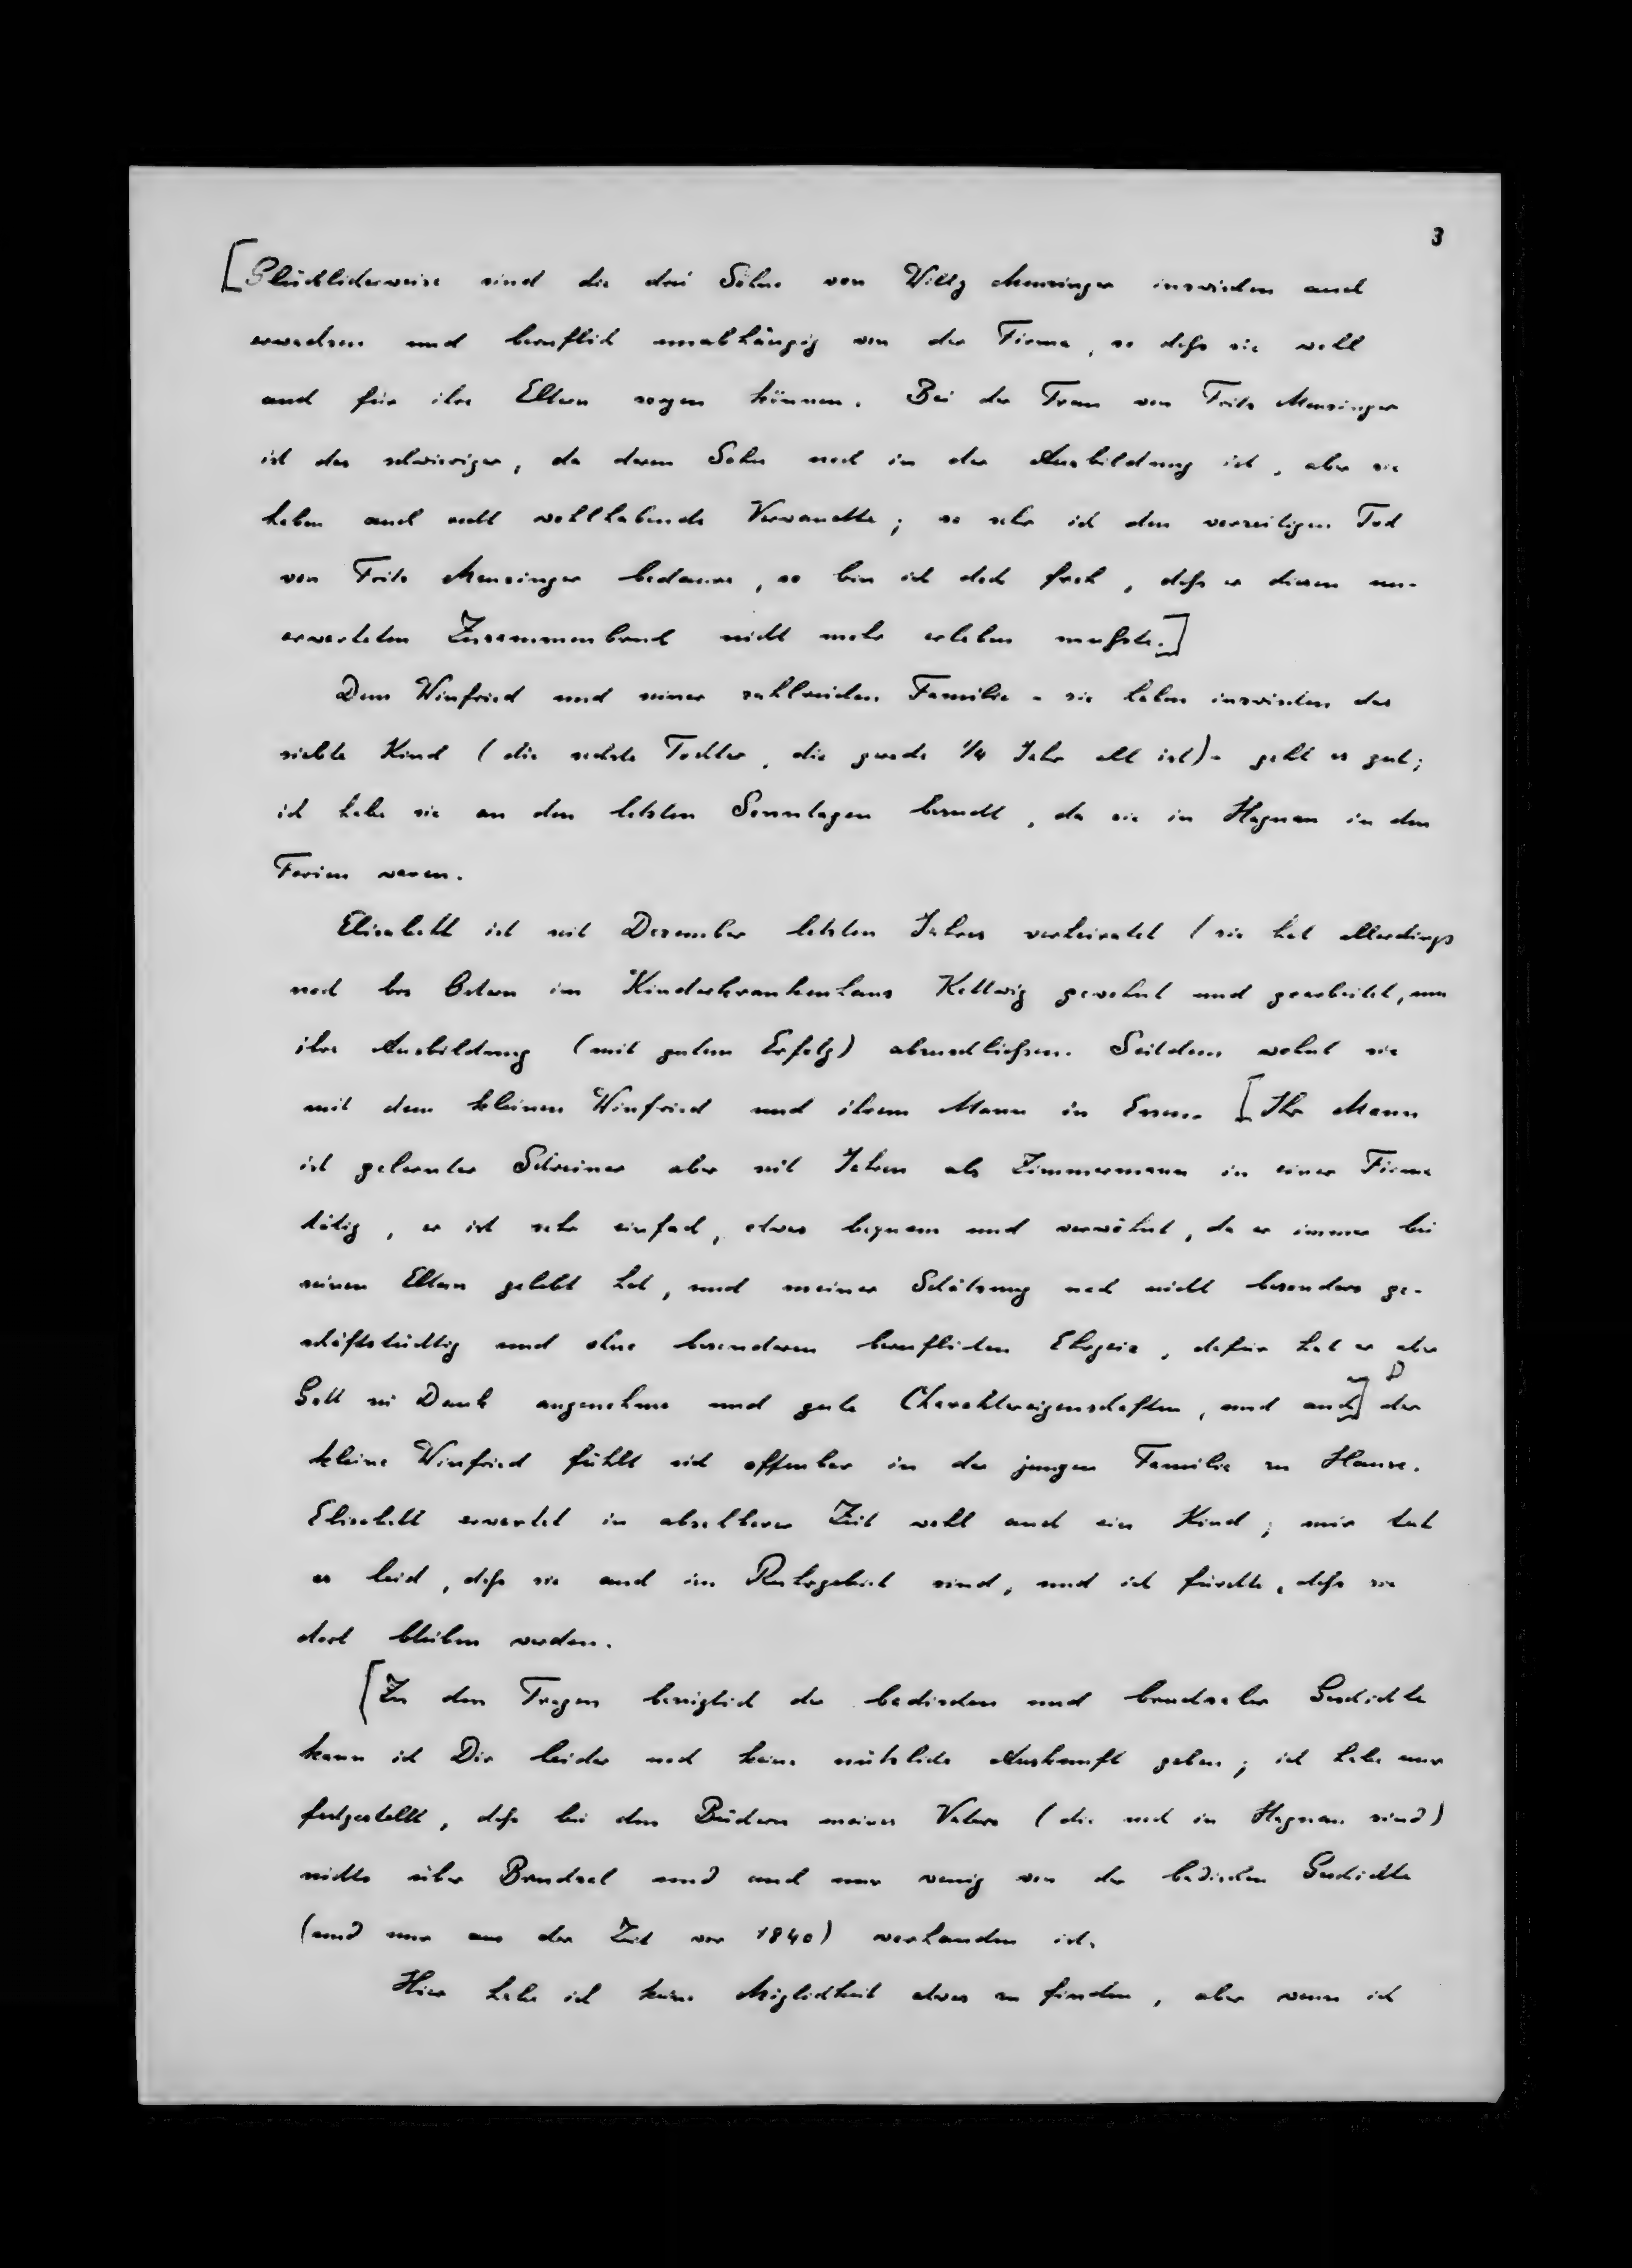 3
[Glücklicherweise sind die drei Söhne von Willy Menzinger inzwischen auch
erwachsen und beruflich unabhängig von der Firma, so daß sie wohl
auch für ihre Eltern sorgen können. Bei der Frau von Fritz Menzinger
ist das schwieriger, da deren Sohn noch in der Ausbildung ist, aber sie
haben auch recht wohlhabende Verwandte; so sehr ich den vorzeitigen Tod
von Fritz Menzinger bedaure, so bin ich doch froh, daß er diesen un-
erwarteten Zusammenbruch nicht mehr erleben mußte.]
Dem Winfried und seiner zahlreichen Familie - sie haben inzwischen das
siebte Kind (die sechste Tochter, die gerade 1/4 Jahr alt ist) - geht es gut;
ich habe sie an den letzten Sonntagen besucht, da sie in Hagnau in den
Ferien waren.
Elisabeth ist seit Dezember letzten Jahres verheiratet (sie hat allerdings
noch bis Ostern im Kinderkrankenhaus Kettwig gewohnt und gearbeitet, um
ihre Ausbildung (mit gutem Erfolg) abzuschließen. Seitdem wohnt sie
mit dem kleinen Winfried und ihrem Mann in Essen. [Ihr Mann
ist gelernter Schreiner aber seit Jahren als Zimmermann in einer Firma
tätig, er ist sehr einfach, etwas bequem und verwöhnt, da er immer bei
seinen Eltern gelebt hat, und meiner Schätzung nach nicht besonders ge-
schäftstüchtig und ohne besonderen beruflichen Ehrgeiz, dafür hat er aber
Gott sei Dank angenehme und gute Charaktereigenschaften, und auch] der
kleine Winfried fühlt sich offenbar in der jungen Familie zu Hause.
Elisabeth erwartet in absehbarer Zeit wohl auch ein Kind; mir tut
es leid, daß sie auch im Ruhrgebiet sind, und ich fürchte, daß sie
dort bleiben werden.
[Zu den Fragen bezüglich der badischen und bruchsaler Geschichte
kann ich Dir leider noch keine nützliche Auskunft geben; ich habe nur
festgestellt, daß bei den Büchern meines Vaters (die noch in Hagnau sind)
nichts über Bruchsal und auch nur wenig von der badischen Geschichte
(und nur aus der Zeit vor 1840) vorhanden ist.
Hier habe ich keine Möglichkeit etwas zu finden, aber wenn ich